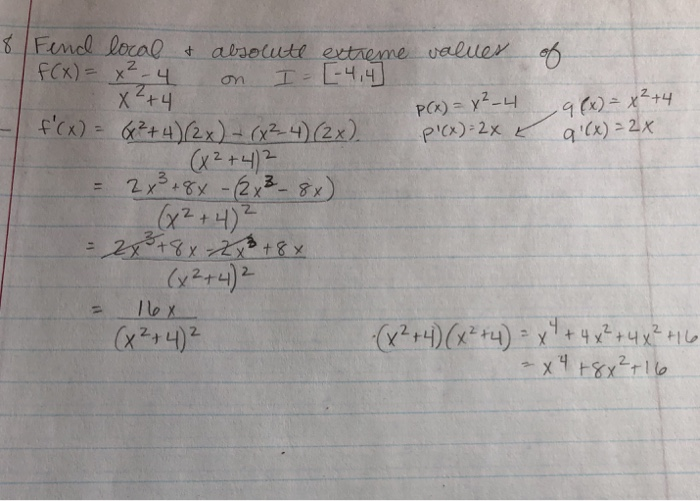 8 Find local + absolute extreme values of
f(x) = x²-4 / x²+4 on I = [-4,4]
p(x) = x²-4 q(x) = x²+4
p'(x)=2x q'(x)=2x
f'(x) = (x²+4)(2x) - (x²-4)(2x) / (x²+4)²
= 2x³+8x - (2x³- 8x) / (x²+4)²
= 2x³+8x -2x³ +8x / (x²+4)²
= 16x / (x²+4)²
(x²+4)(x²+4) = x⁴+4x²+4x²+16
= x⁴+8x²+16